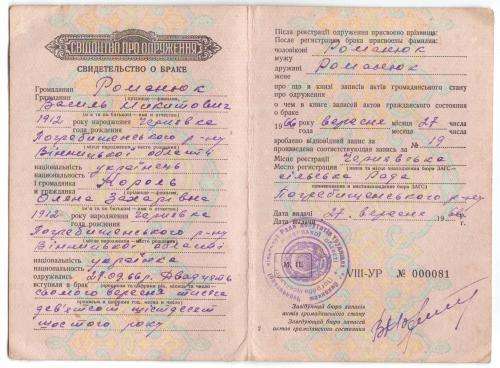 СВІДОЦТВО ПРО ОДРУЖЕННЯ
СВИДЕТЕЛЬСТВО О БРАКЕ
Громадянин
Гражданин Романюк
(прізвище — фамилия)
Василь Микитович
1912 року народження Чернявка
года рождения
Погребищенського р-ну
Вінницької області
національність українець
национальность
і громадянка Король
и гражданка
(прізвище — фамилия)
Олена Захарівна
1912 року народження Чернявка
года рождения
Погребищенського р-ну
(місце народження — место рождения)
Вінницької області
національність українка
национальность
одружились 27.09.66р. Двадцять
вступили в брак
сьомого вересня тисяча
дев'ятсот шістдесят
шостого року
Після реєстрації одруження присвоєно прізвища:
После регистрации брака присвоены фамилии:
чоловікові Романюк
мужу
дружині Романюк
жене
про що в книзі записів актів громадянського стану
про одруження
о чем в книге записей актов гражданского состояния
о браке
1966 року вересня місяця 27 числа
года месяца числа
зроблено відповідний запис за № 19
произведена соответствующая запись за №
Місце реєстрації Чернявська
Место регистрации
сільська Рада
Погребищенського р-ну
Дата видачі 27 вересня 1966
Дата выдачи
М. П.
VIII-УР № 000081
Завідуючий бюро записів
актів громадянського стану
Заведующий бюро записей
актов гражданского состояния